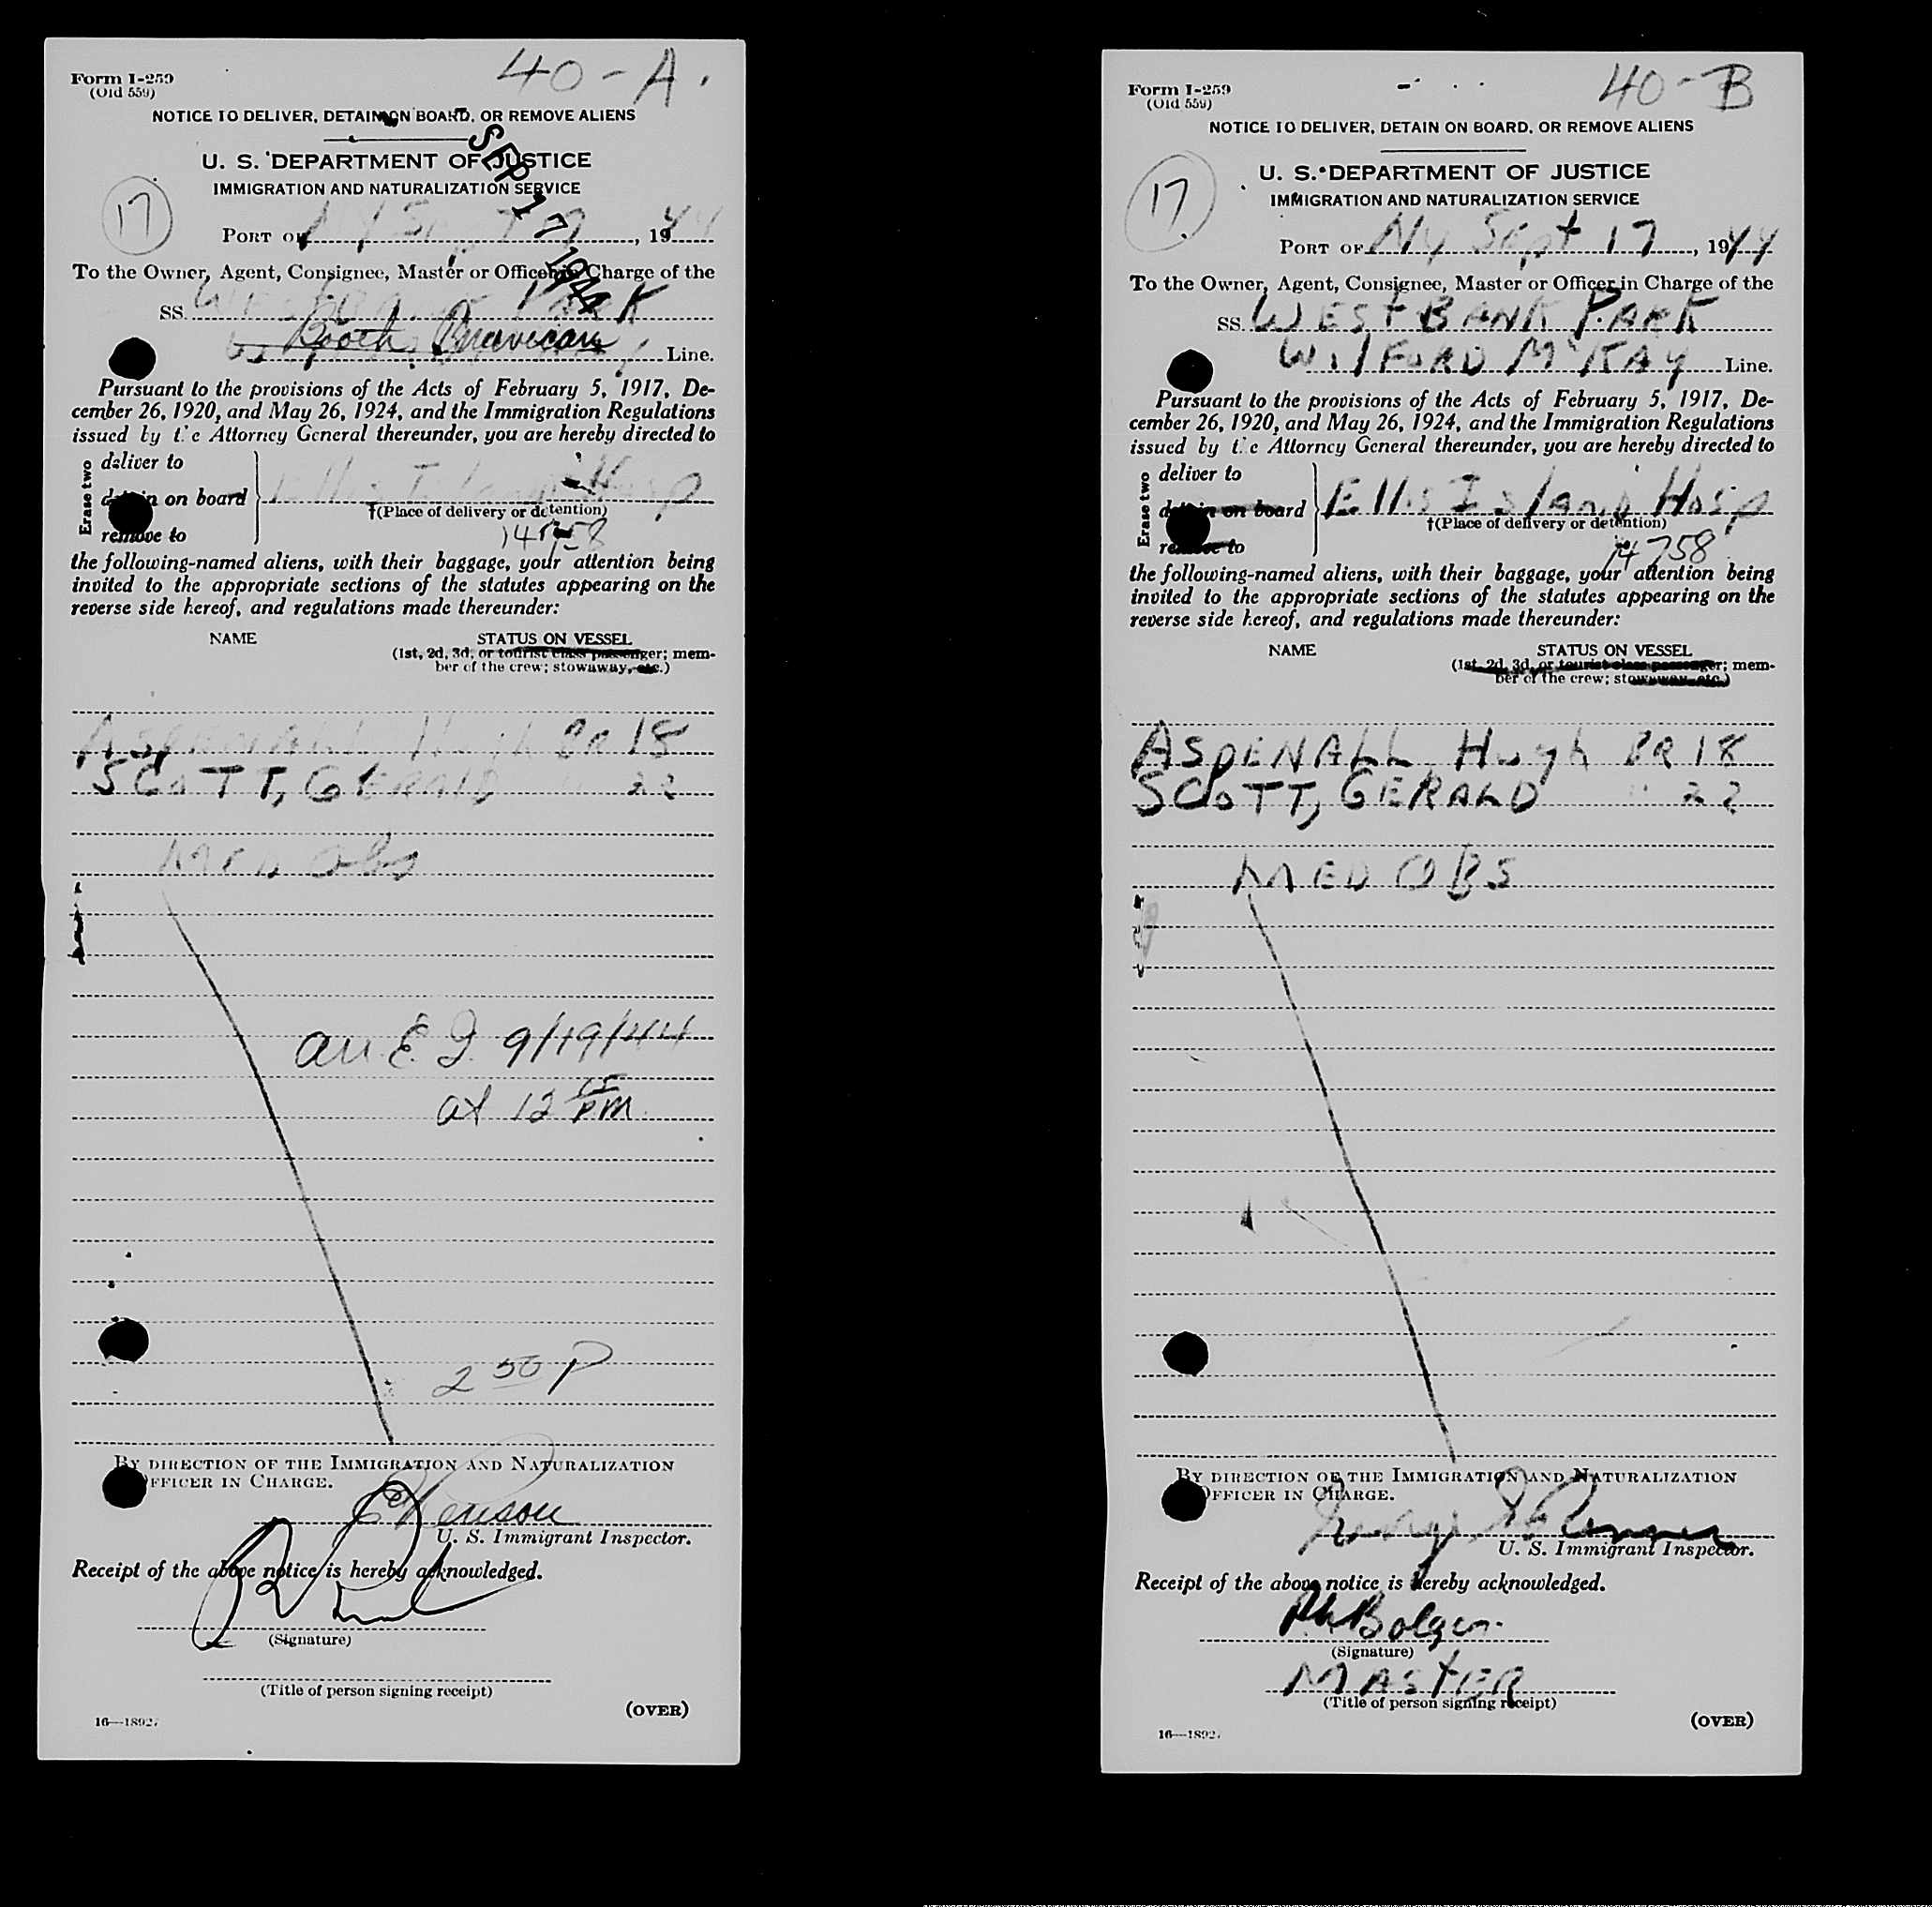 40-A.
Form I-259
(Old 559)
NOTICE TO DELIVER, DETAIN ON BOARD, OR REMOVE ALIENS
U. S. DEPARTMENT OF JUSTICE
IMMIGRATION AND NATURALIZATION SERVICE
SEP 17 1944
17
PORT OF NY Sept 17, 1944
To the Owner, Agent, Consignee, Master or Officer in Charge of the
SS. WEST BANK PARK
Booth Line.
Pursuant to the provisions of the Acts of February 5, 1917, De-
cember 26, 1920, and May 26, 1924, and the Immigration Regulations
issued by the Attorney General thereunder, you are hereby directed to
Erase two
deliver to
detain on board
remove to
Ellis Island Hosp
†(Place of delivery or detention)
14758
the following-named aliens, with their baggage, your attention being
invited to the appropriate sections of the statutes appearing on the
reverse side hereof, and regulations made thereunder:
NAME
STATUS ON VESSEL
(1st, 2d, 3d, or tourist class passenger; mem-
ber of the crew; stowaway, etc.)
ASPENALL Hugh BR 18
SCOTT, GERALD " 22
MED Obs
arr. E. I. 9/19/44
at 12 15 pm.
2 50 P
BY DIRECTION OF THE IMMIGRATION AND NATURALIZATION
OFFICER IN CHARGE.
U. S. Immigrant Inspector.
Receipt of the above notice is hereby acknowledged.
(Signature)
(Title of person signing receipt)
(OVER)
16—18927
40-B
Form I-259
(Old 559)
NOTICE TO DELIVER, DETAIN ON BOARD, OR REMOVE ALIENS
U. S. DEPARTMENT OF JUSTICE
IMMIGRATION AND NATURALIZATION SERVICE
17
PORT OF NY Sept 17, 1944
To the Owner, Agent, Consignee, Master or Officer in Charge of the
SS. WEST BANK PARK
WilFORD McKAY Line.
Pursuant to the provisions of the Acts of February 5, 1917, De-
cember 26, 1920, and May 26, 1924, and the Immigration Regulations
issued by the Attorney General thereunder, you are hereby directed to
Erase two
deliver to
detain on board
remove to
Ellis Island Hosp
†(Place of delivery or detention)
14758
the following-named aliens, with their baggage, your attention being
invited to the appropriate sections of the statutes appearing on the
reverse side hereof, and regulations made thereunder:
NAME
STATUS ON VESSEL
(1st, 2d, 3d, or tourist class passenger; mem-
ber of the crew; stowaway, etc.)
ASPENALL Hugh BR 18
SCOTT, GERALD " 22
MED OBS
BY DIRECTION OF THE IMMIGRATION AND NATURALIZATION
OFFICER IN CHARGE.
U. S. Immigrant Inspector.
Receipt of the above notice is hereby acknowledged.
Bolger
(Signature)
MASTER
(Title of person signing receipt)
(OVER)
16—18927